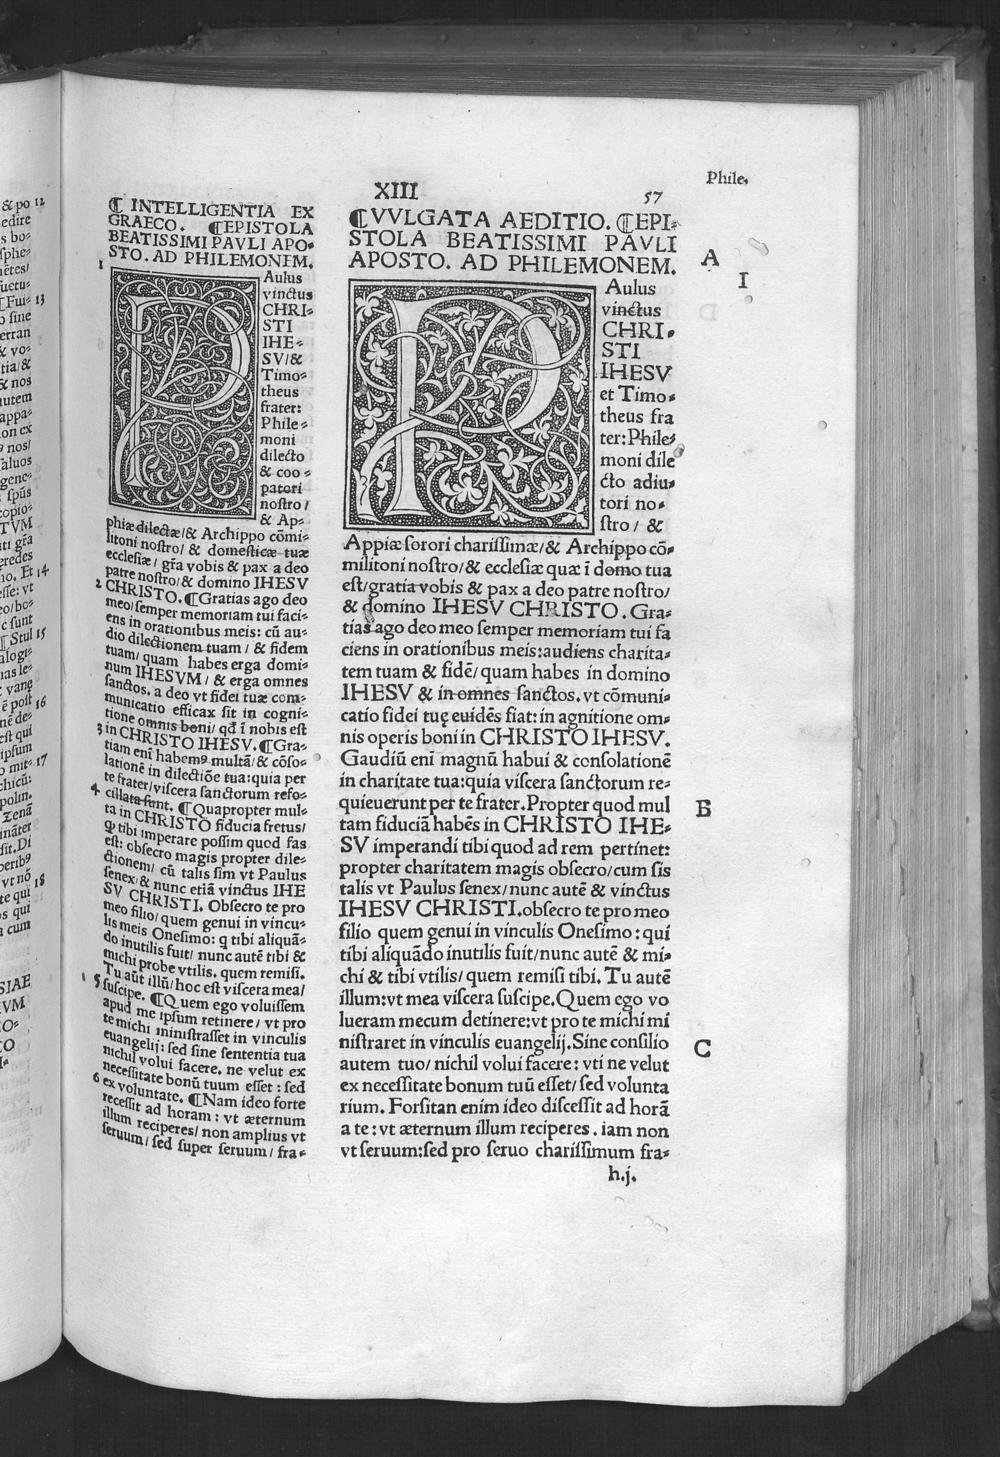 XIII
57
Phile.
¶ INTELLIGENTIA EX
GRAECO. ¶EPISTOLA
BEATISSIMI PAVLI APO⸗
STO. AD PHILEMONEM.
1
PAulus
vinctus
CHRI⸗
STI
IHE⸗
SV/&
Timo⸗
theus
frater:
Phile⸗
moni
dilecto
& coo⸗
patori
nostro/
& Ap⸗
phiæ dilectæ/& Archippo cōmi⸗
litoni nostro/ & domesticæ tuæ
ecclesiæ/ gr̃a vobis & pax a deo
patre nostro/& domino IHESV
2 CHRISTO. ¶Gratias ago deo
meo/semper memoriam tui faci⸗
ens in orationibus meis: cū au⸗
dio dilectionem tuam/ & fidem
tuam/ quam habes erga domi⸗
num IHESVM/ & erga omnes
sanctos. a deo vt fidei tuæ com⸗
municatio efficax sit in cogni⸗
tione omnis boni/ qd̄ ī nobis est
3 in CHRISTO IHESV. ¶Gra⸗
tiam enī habemꝰ multā/ & cōso⸗
lationē in dilectiōe tua:quia per
te frater/viscera sanctorum refo⸗
4 cillata sunt. ¶Quapropter mul⸗
ta in CHRISTO fiducia fretus/
ꝙ tibi imperare possim quod fas
est: obsecro magis propter dile⸗
ctionem/ cū talis sim vt Paulus
senex/& nunc etiā vinctus IHE
SV CHRISTI. Obsecro te pro
meo filio/ quem genui in vincu⸗
lis meis Onesimo: q tibi aliquā⸗
do inutilis fuit/ nunc autē tibi &
michi probe vtilis. quem remisi.
Tu aūt illū/ hoc est viscera mea/
5 suscipe. ¶Quem ego voluissem
apud me ipsum retinere/ vt pro
te michi ministrasset in vinculis
euangelij: sed sine sententia tua
nichil volui facere. ne velut ex
necessitate bonū tuum esset: sed
6 ex voluntate. ¶Nam ideo forte
recessit ad horam: vt æternum
illum reciperes/ non amplius vt
seruum/ sed super seruum/ fra⸗
¶VVLGATA AEDITIO. ¶EPI⸗
STOLA BEATISSIMI PAVLI
APOSTO. AD PHILEMONEM.
A
I
PAulus
vinctus
CHRI⸗
STI
IHESV
et Timo⸗
theus fra
ter:Phile⸗
moni dile
cto adiu⸗
tori no⸗
stro/ &
Appiæ sorori charissimæ/& Archippo cō⸗
militoni nostro/& ecclesiæ quæ ī domo tua
est/gratia vobis & pax a deo patre nostro/
& domino IHESV CHRISTO. Gra⸗
tias ago deo meo semper memoriam tui fa
ciens in orationibus meis:audiens charita⸗
tem tuam & fidē/ quam habes in domino
IHESV & in omnes sanctos. vt cōmuni⸗
catio fidei tuę euidēs fiat: in agnitione om⸗
nis operis boni in CHRISTO IHESV.
Gaudiū eni magnū habui & consolationē
in charitate tua:quia viscera sanctorum re⸗
quieuerunt per te frater. Propter quod mul
B
tam fiduciā habēs in CHRISTO IHE⸗
SV imperandi tibi quod ad rem pertinet:
propter charitatem magis obsecro/cum sis
talis vt Paulus senex/nunc autē & vinctus
IHESV CHRISTI.obsecro te pro meo
filio quem genui in vinculis Onesimo: qui
tibi aliquādo inutilis fuit/nunc autē & mi⸗
chi & tibi vtilis/ quem remisi tibi. Tu autē
illum:vt mea viscera suscipe. Quem ego vo
lueram mecum detinere:vt pro te michi mi
nistraret in vinculis euangelij. Sine consilio
C
autem tuo/ nichil volui facere: vti ne velut
ex necessitate bonum tuū esset/ sed volunta
rium. Forsitan enim ideo discessit ad horā
a te: vt æternum illum reciperes. iam non
vt seruum:sed pro seruo charissimum fra⸗
h.j.